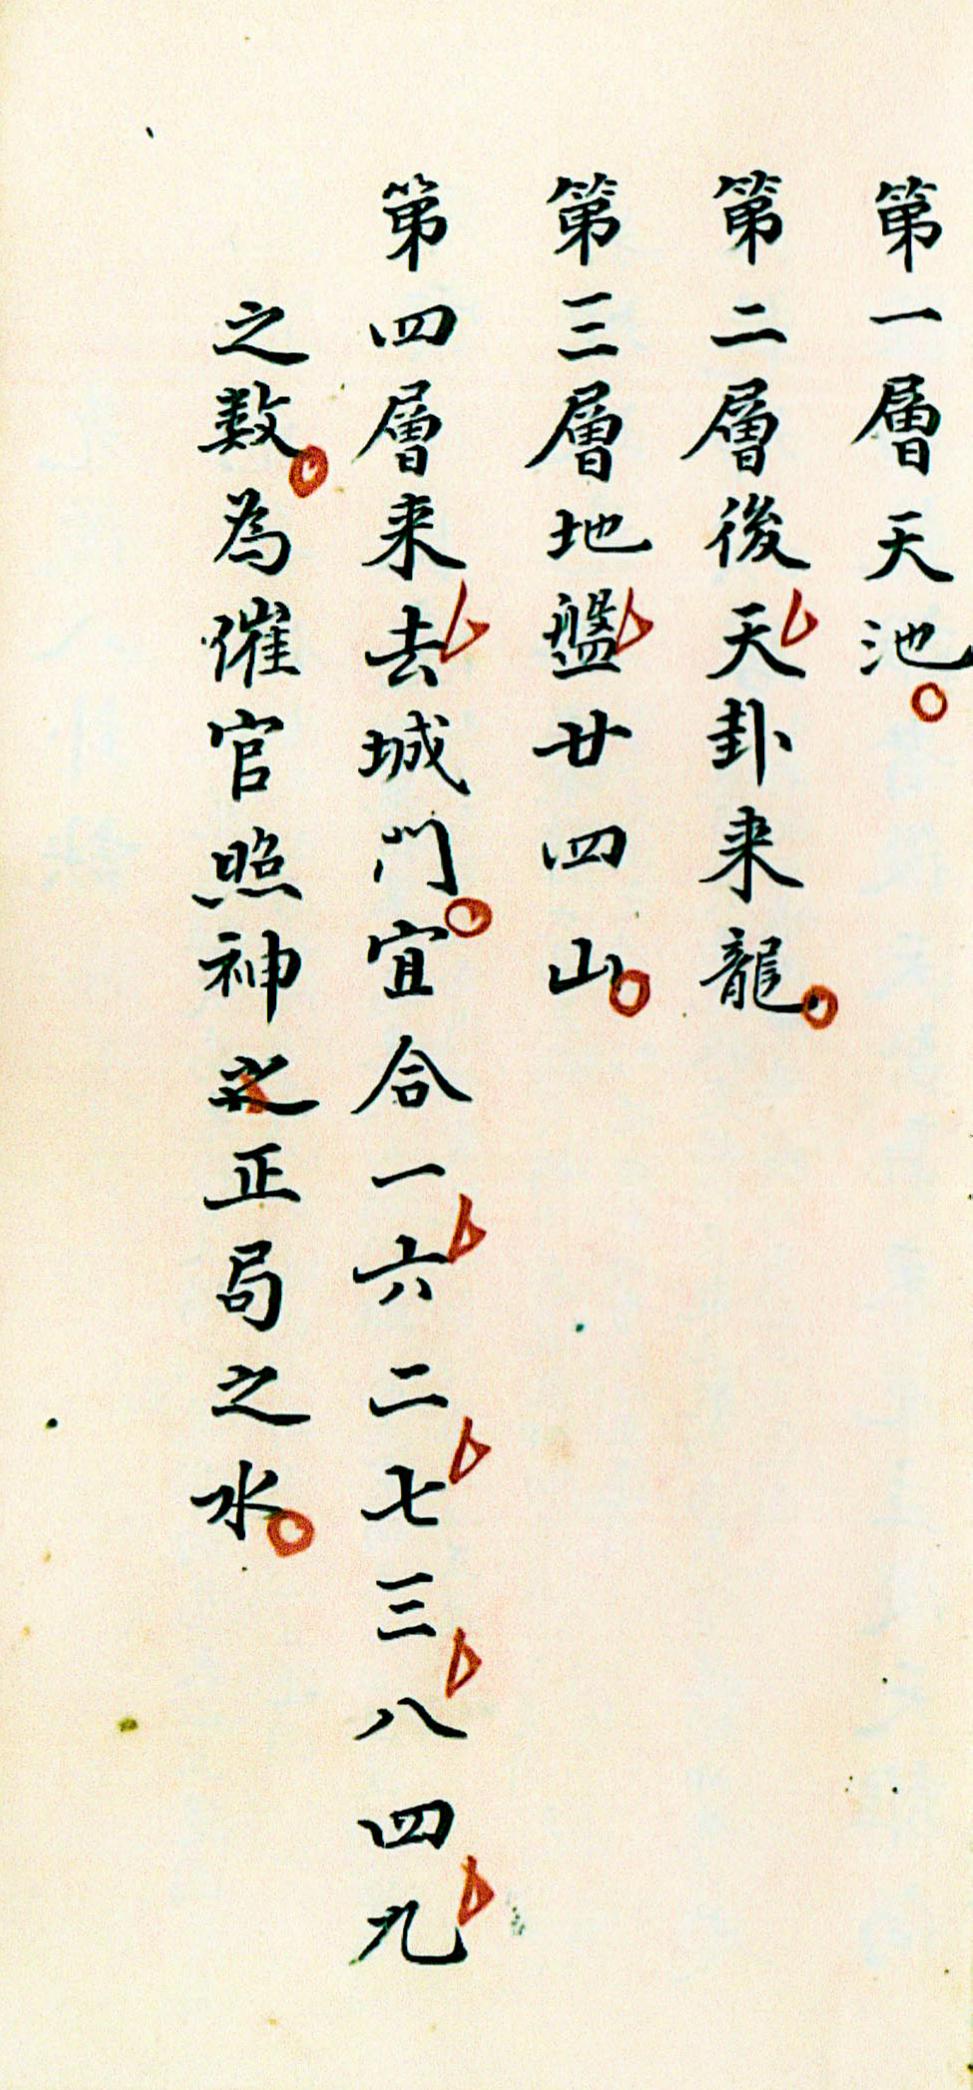 第一層天池。
第二層後天卦来龍。
第三層地盤廿四山。
第四層来去城門。宜合一六二七三八四九
之数。為催官照神之正局之水。